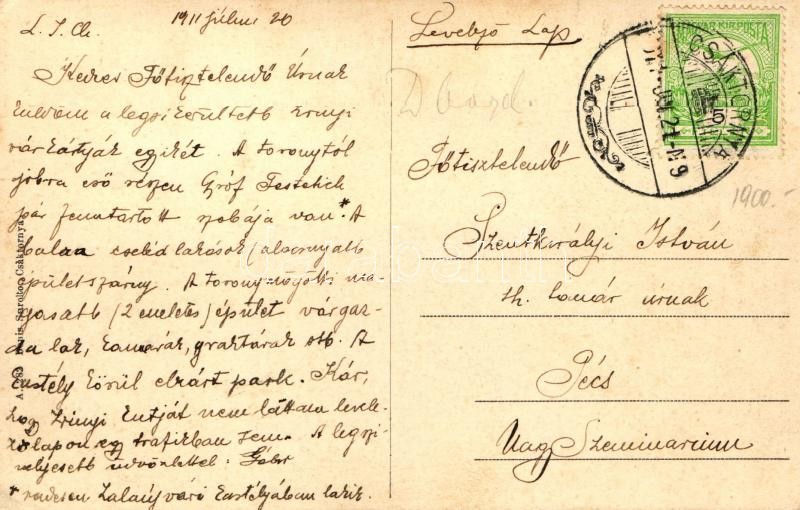 L. J. Ch.
1911 július 20
Kedves Főtisztelendő Úrnak
küldöm a legsikerültebb zrinyi
vár kártyák egyikét. A toronytól
jobra eső részen Gróf Festetich
pár fenntartott szobája van.* A
balra cseléd lakások / alacsonyabb
épületszárny. A torony mögötti ma-
gasabb / 2 emeletes / épület várgaz-
da lak, kamarák, graktárak stb. A
kastély körül elzárt park. Kár,
hogy Zrinyi kútját nem láttam levele-
zőlapon egy trafikban sem. A legszi-
vélyesebb üdvözlettel: Gábor
* rendesen Zalaújvári kastélyában lakik.
Levelező Lap
MAGYAR KIR. POSTA
CSÁKTORNYA
5
1900.-
Főtisztelendő
Szentkirályi István
th. tanár úrnak
Pécs
Nagy Szeminarium